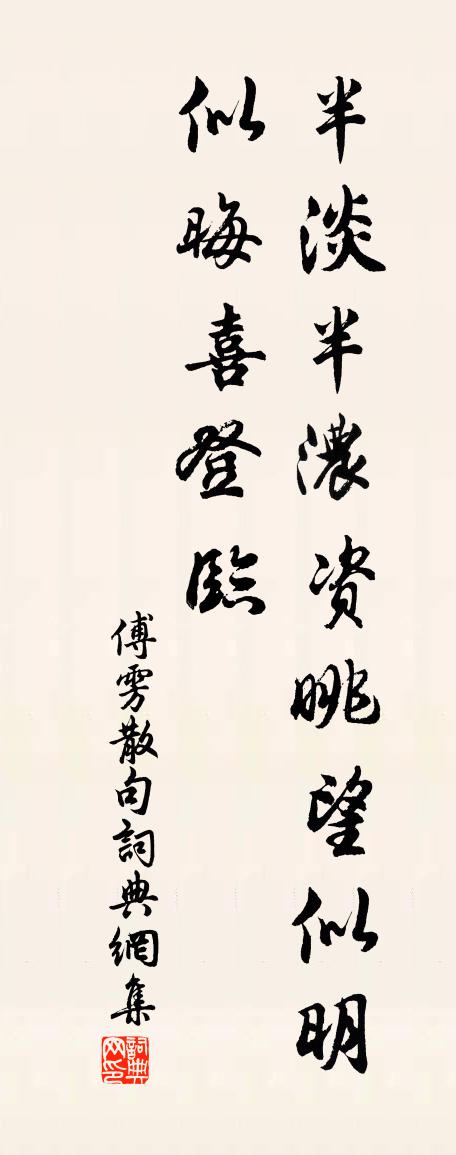 半淡半濃資眺望似明
似晦喜登臨
傅雱散句詞典網集
詞典网印